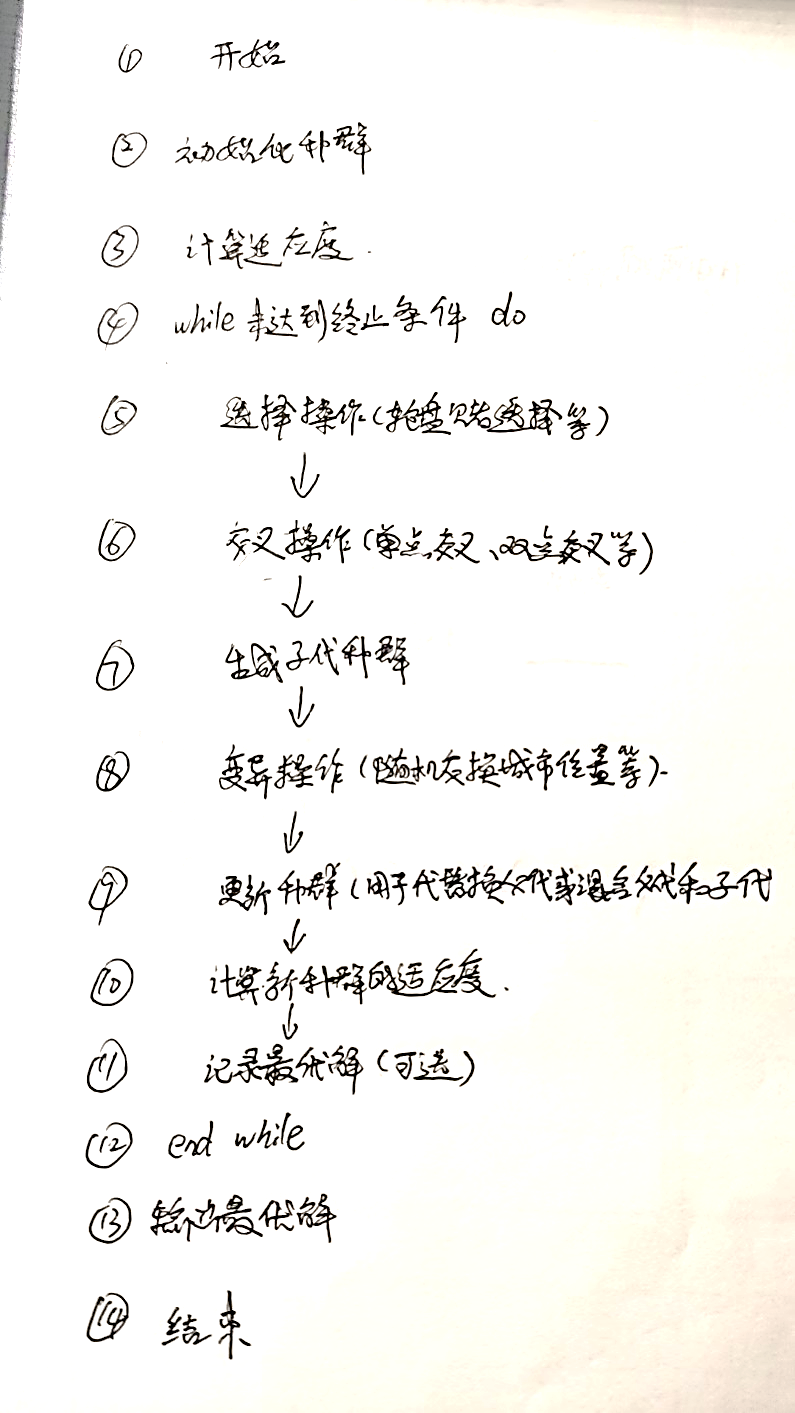 ① 开始
② 初始化种群
③ 计算适应度.
④ while 未达到终止条件 do
⑤ 选择操作(轮盘赌选择等)
↓
⑥ 交叉操作(单点交叉、双点交叉等)
↓
⑦ 生成子代种群
↓
⑧ 变异操作(随机交换城市位置等).
↓
⑨ 更新种群(用子代替换父代或混合父代和子代
↓
⑩ 计算新种群的适应度.
↓
⑪ 记录最优解(可选)
⑫ end while
⑬ 输出最优解
⑭ 结束